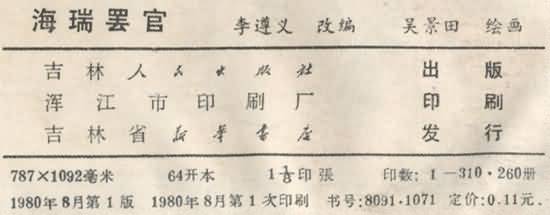 海瑞罢官 李遵义 改编 吴景田 绘画
吉林人民出版社 出版
浑江市印刷厂 印刷
吉林省新华书店 发行
787×1092毫米 64开本 1⅛印張 印数:1—310·260册
1980年8月第1版 1980年8月第1次印刷 书号:8091·1071 定价:0.11元.